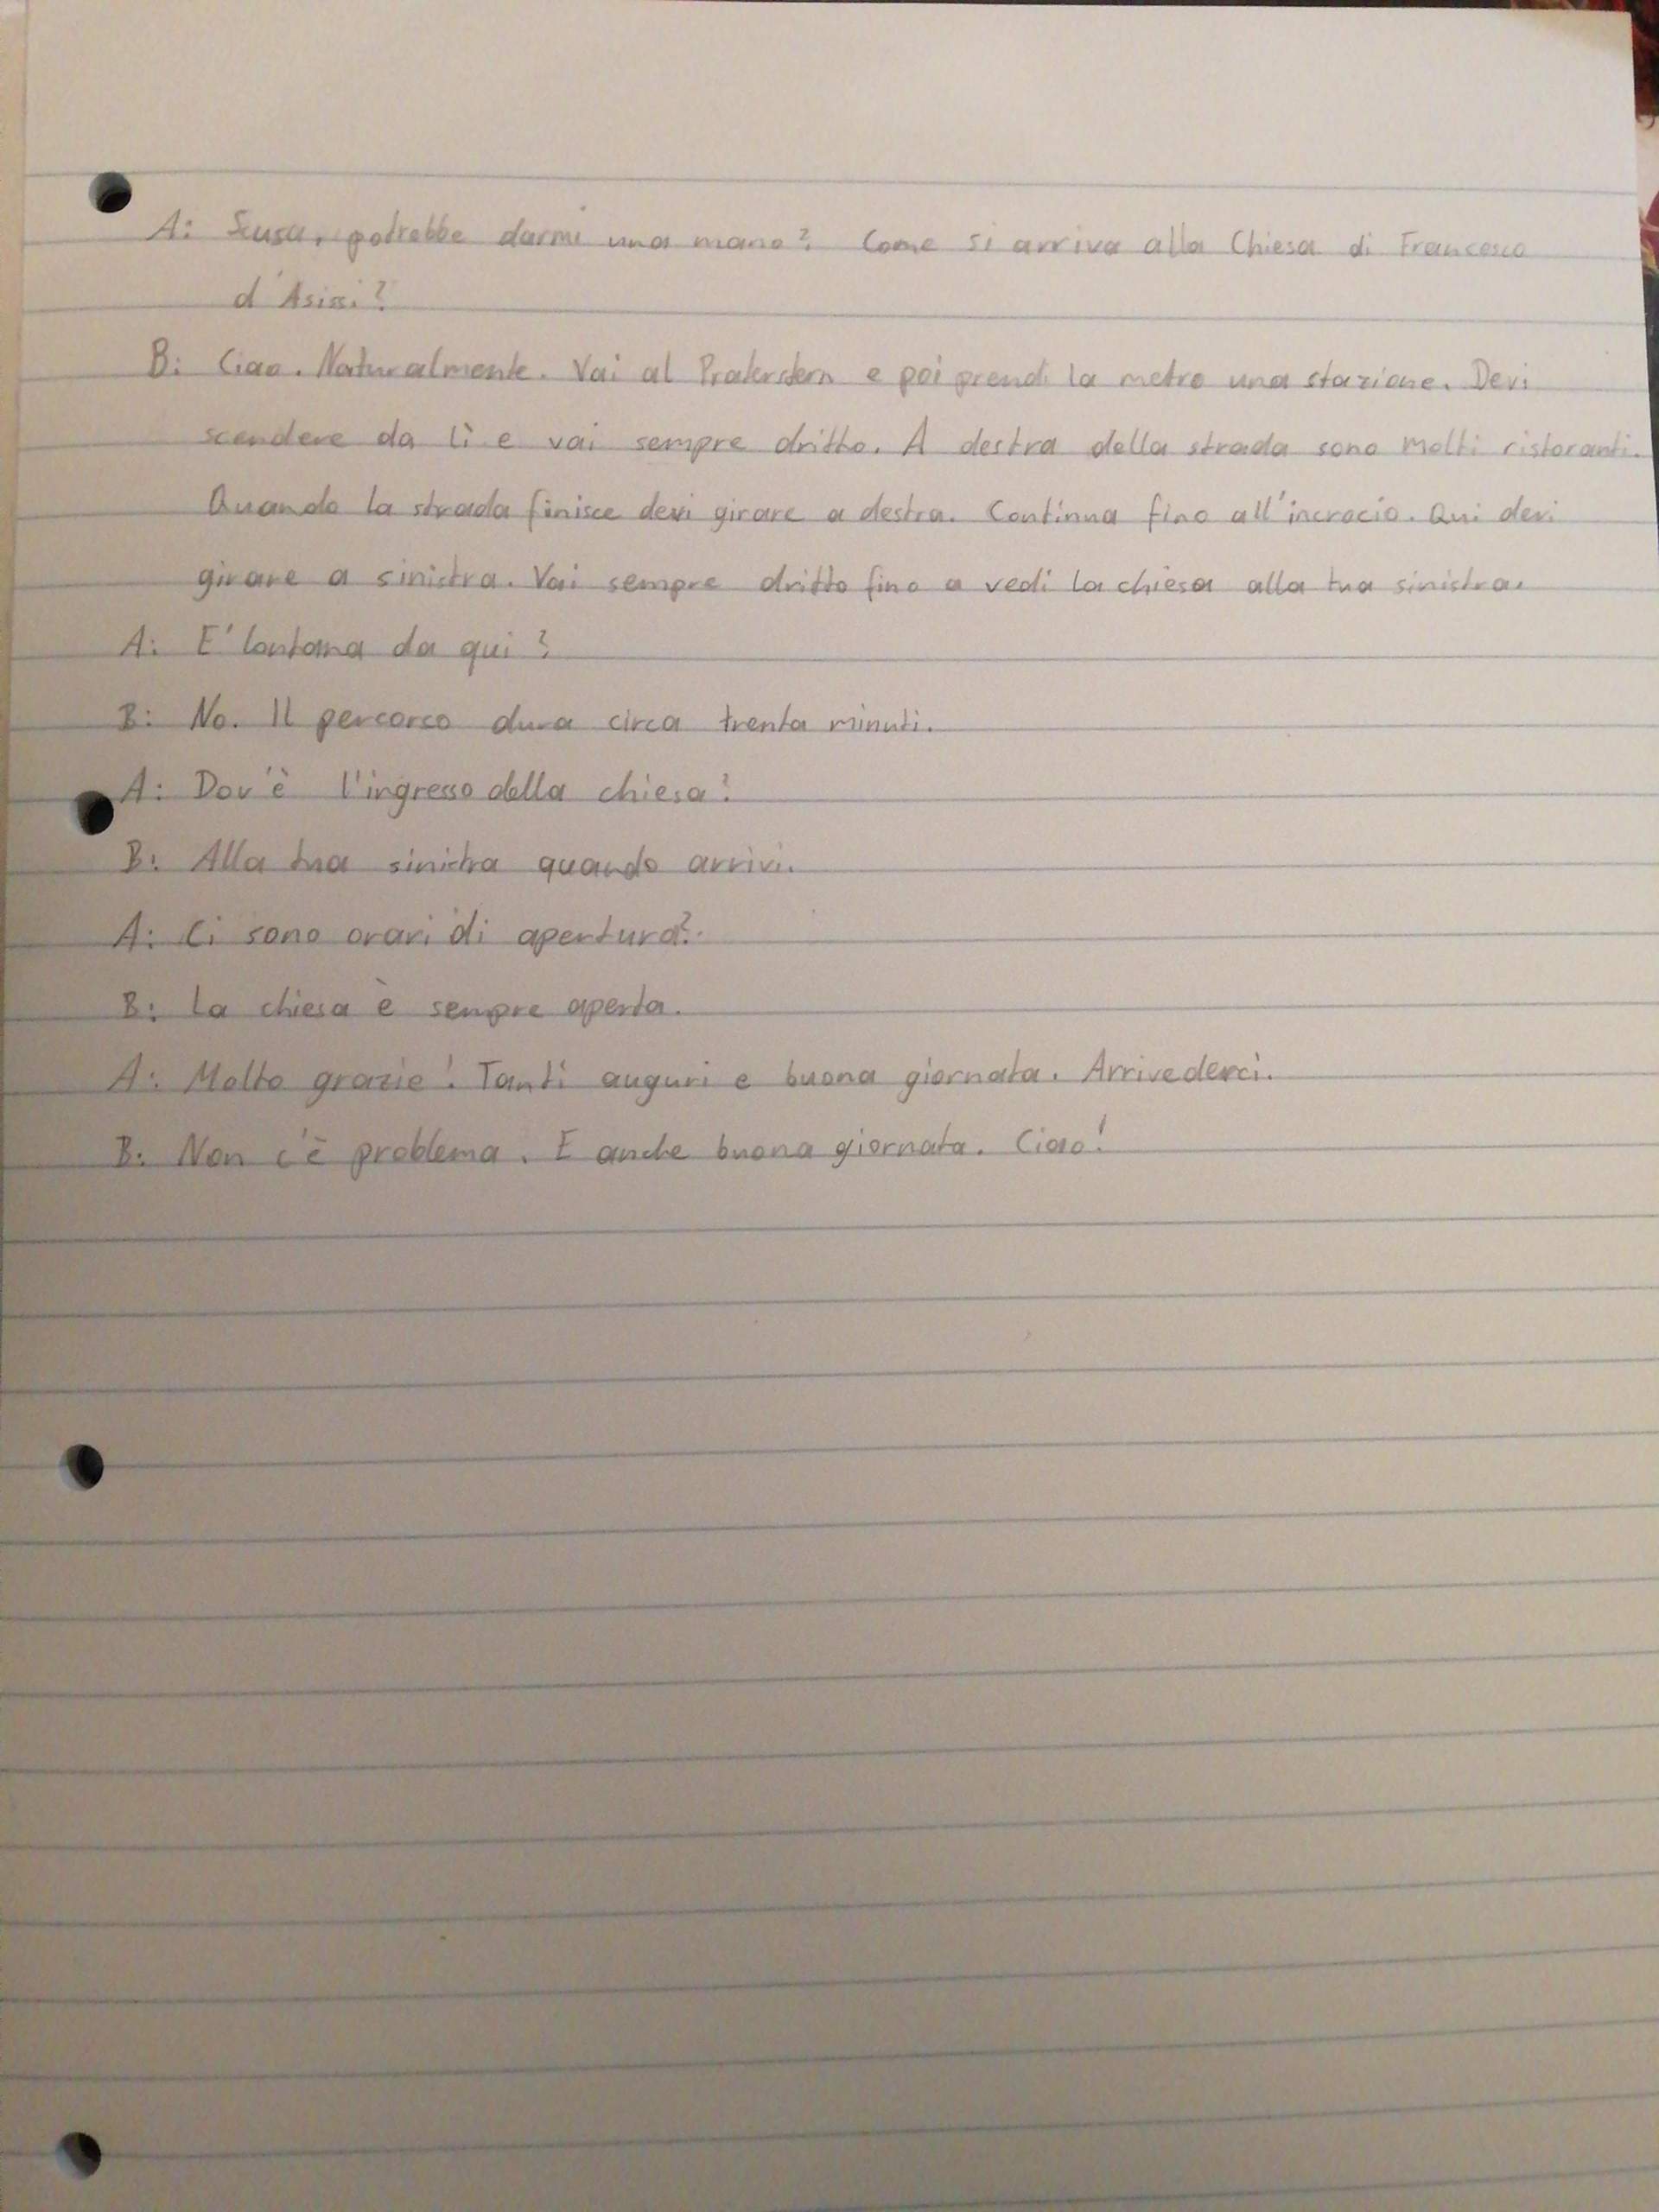 A: Scusa, potrebbe darmi una mano? Come si arriva alla Chiesa di Francesco
d'Asissi?
B: Ciao. Naturalmente. Vai al Praterstern e poi prendi la metro una stazione. Devi
scendere da lì e vai sempre dritto. A destra della strada sono molti ristoranti.
Quando la strada finisce devi girare a destra. Continua fino all'incrocio. Qui devi
girare a sinistra. Vai sempre dritto fino a vedi la chiesa alla tua sinistra.
A: E' lontana da qui?
B: No. Il percorso dura circa trenta minuti.
A: Dov'è l'ingresso della chiesa?
B: Alla tua sinistra quando arrivi.
A: Ci sono orari di apertura?
B: La chiesa è sempre aperta.
A: Molto grazie! Tanti auguri e buona giornata. Arrivederci.
B: Non c'è problema. E anche buona giornata. Ciao!